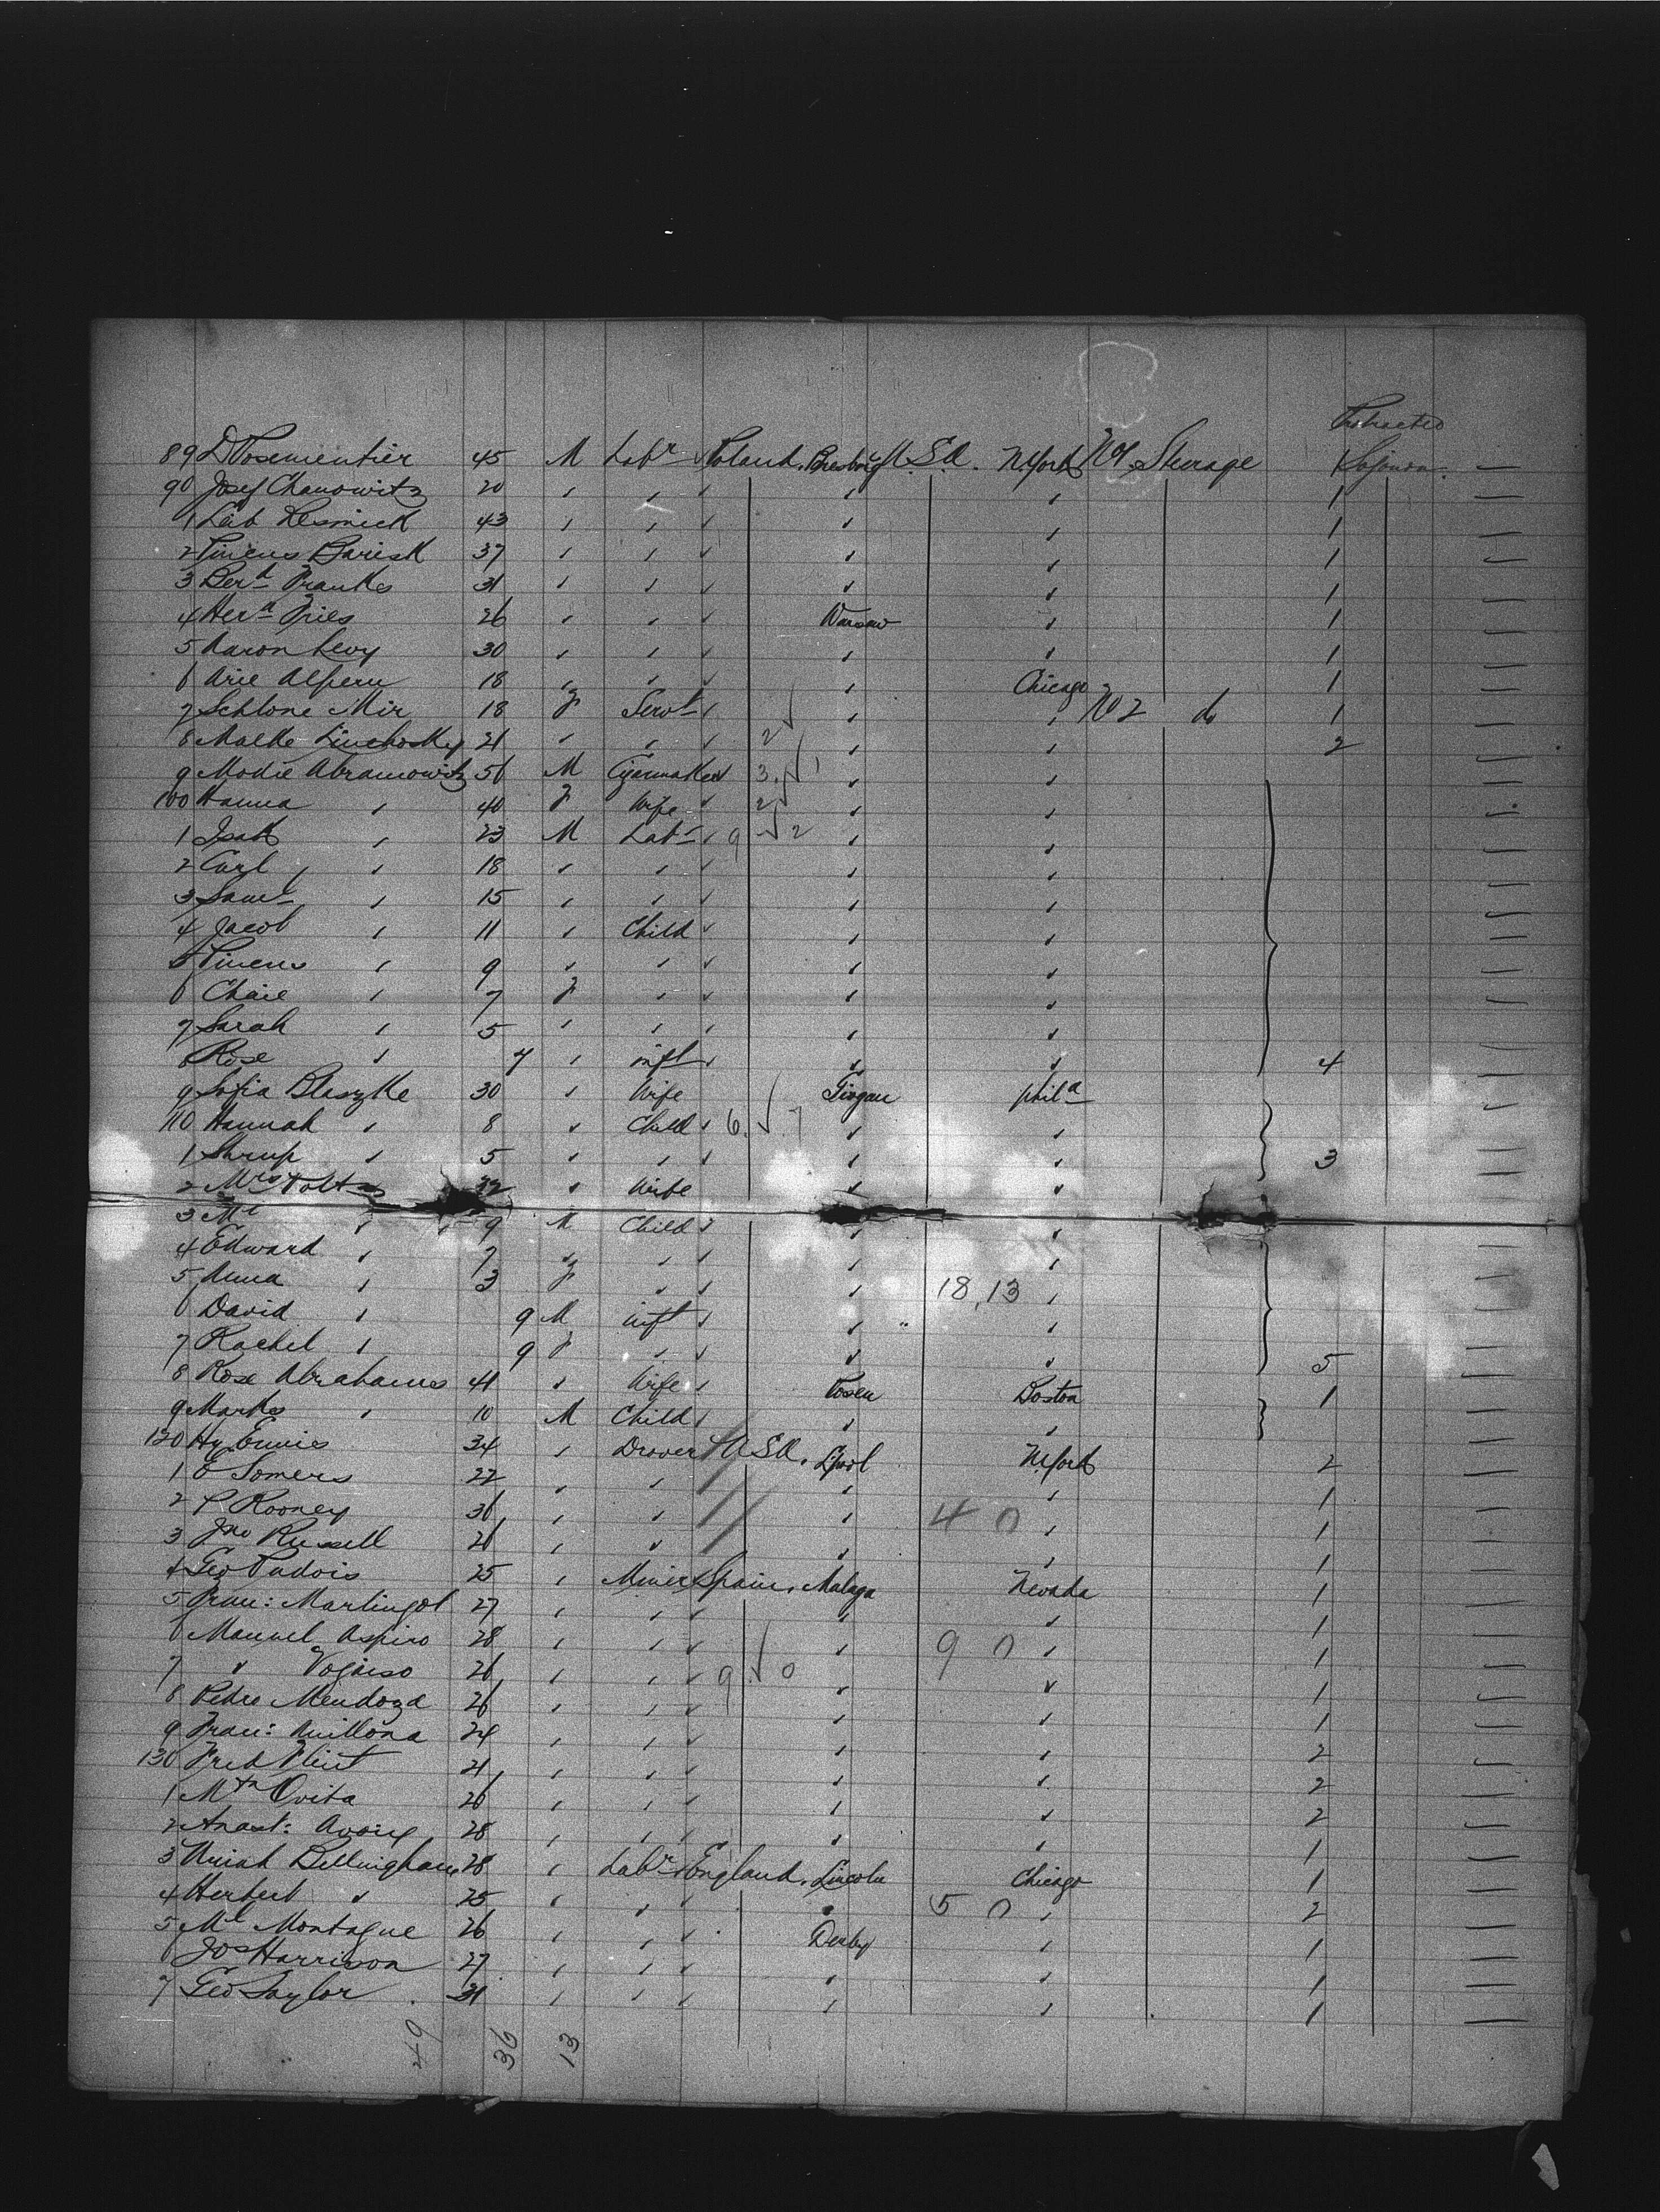 Protracted
89 D Posementier 45 M Labr Poland Presburg U.S.A. N York No 1 Steerage 1 Sojourn —
90 Josef Chanowitz 20 " " " " " 1 —
1 Lab Resnick 43 " " " " " 1 —
2 Pincus Barisk 37 " " " " " 1 —
3 Berh Franks 31 " " " " " 1 —
4 Hera Fries 26 " " " Warsaw " 1 —
5 Aaron Levy 30 " " " " " 1 —
6 Arie Alpern 18 " " " " Chicago 1 —
7 Schlone Mir 18 F Servt " " " No 2 do 1 —
8 Malke 21 " " " 2 " " 2 —
9 Modie Abramowitz 56 M Cigarmaker 3 1 " " —
100 Hanna " 40 F Wife " 2 " " —
1 Isak " 23 M Labr " 9 2 " " —
2 Carl " 18 " " " " " —
3 Saml " 15 " " " " " —
4 Jacob " 11 " Child " " " —
5 Pincus " 9 " " " " " —
6 Chaie " 7 F " " " " —
7 Sarah " 5 " " " " " —
8 Rose " 7 " inft " " " 4 —
9 Sofia Blaszke 30 " Wife phila —
110 Hannah " 8 " Child " 6 7 " " —
1 " 5 " " " " " 3 —
2 Mrs 32 " Wife " " —
3 Ml " 9 M Child " " " —
4 Edward " 7 " " " " " —
5 Anna " 3 F " " " 18,13 " —
6 David " 9 M inft " " " —
7 Rachel " 9 F " " " " 5 —
8 Rose Abrahams 41 " Wife " Posen Boston 1 —
9 Marks " 10 M Child " " " —
120 Hy Ennis 34 " Drover U.S.A. L'pool N York 2 —
1 E Somers 22 " " " " 1 —
2 P Rooney 36 " " " 4 0 " 1 —
3 Jno Russell 26 " " " " 1 —
4 Geo Pudois 25 " Miner Spain Malaga Nevada 1 —
5 Fran: Martingol 27 " " " " " 1 —
6 Manuel Aspiro 28 " " " " 9 0 " 1 —
7 " 26 " " " 9 0 " " 1 —
8 Pedro Mendoza 26 " " " " " 1 —
9 Fran: 24 " " " " " 2 —
130 Fred Flint 21 " " " " " 2 —
1 Mtn Ovita 26 " " " " " 2 —
2 Anast: 28 " " " " " 1 —
3 Uriah Billingham 28 " Labr England Lincoln Chicago 1 —
4 Herbert " 25 " " " " 5 0 " 2 —
5 Ml Montague 26 " " " Derby " 1 —
6 Jos Harrison 27 " " " " " 1 —
7 Geo Taylor 31 " " " " " 1 —
49 36 13